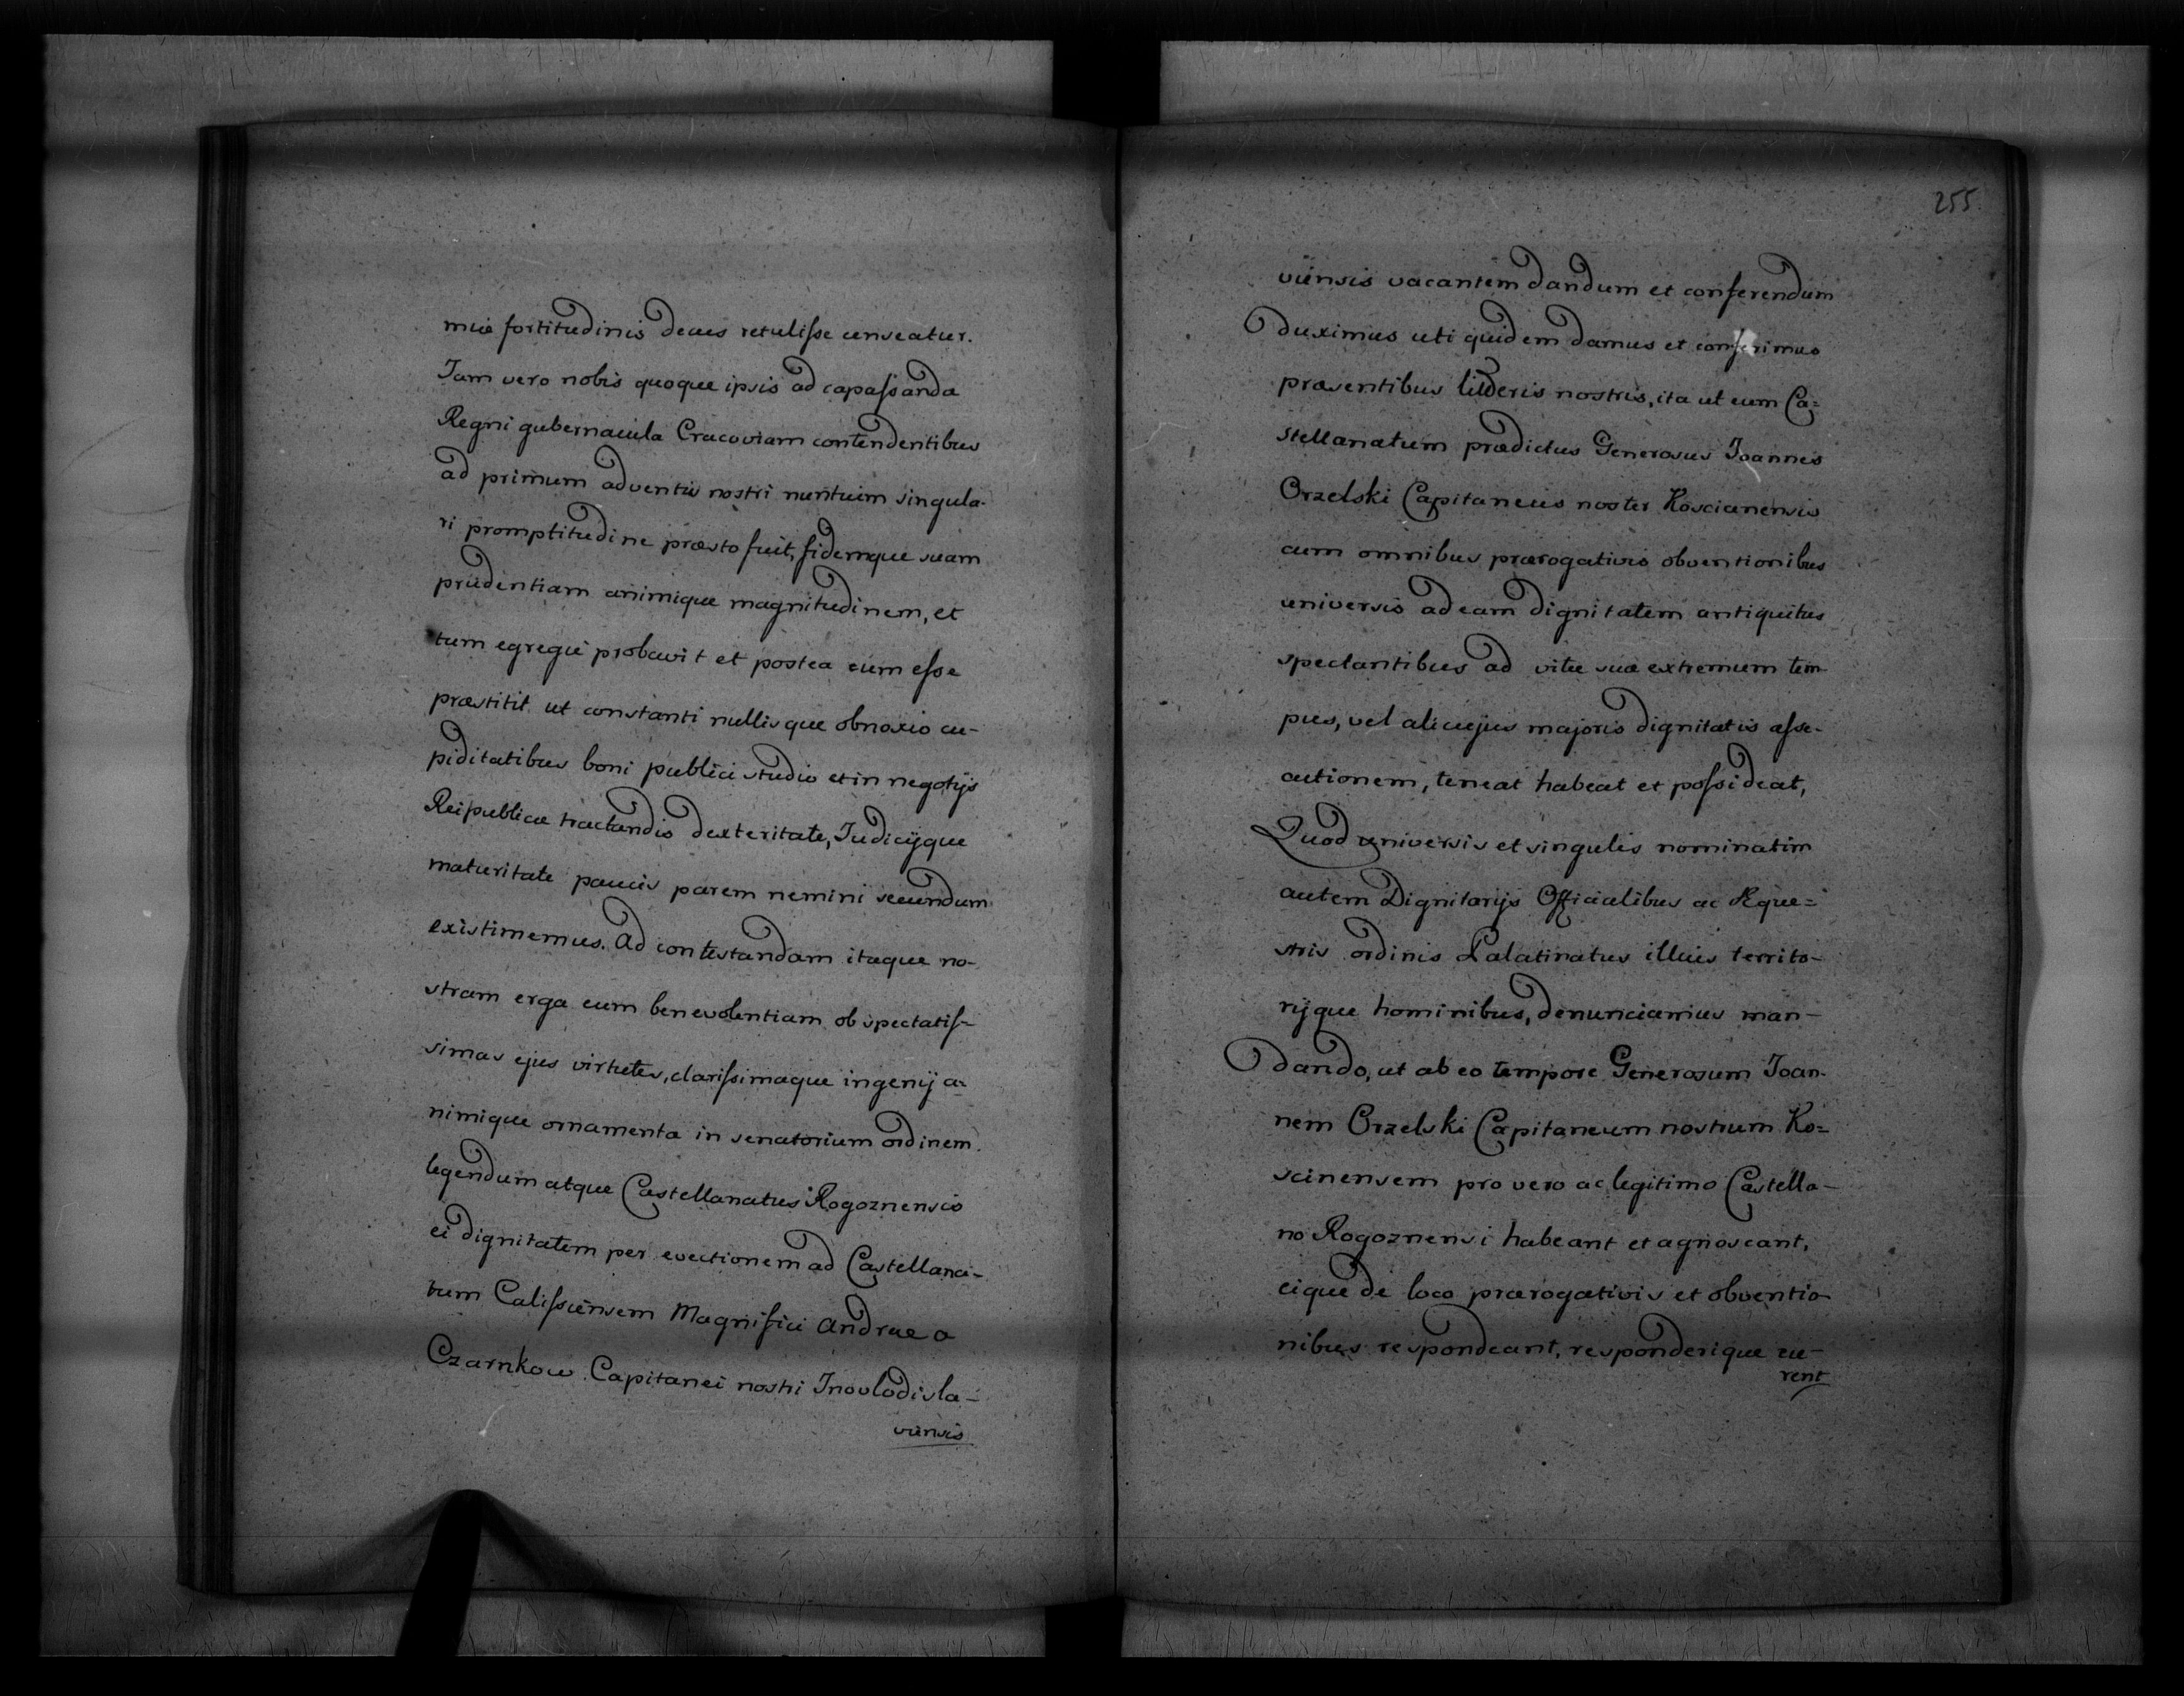 miæ fortitudinis decus retulisse censeatur.
Iam vero nobis quoque ipsis ad capassanda
Regni gubernacula Cracoviam contendentibus
ad primum adventus nostri nuntium singula-
ri promptitudine præsto fuit, fidemque suam
prudentiam animique magnitudinem, et
tum egregie probavit et postea eum esse
præstitit ut constanti nullisque obnoxio cu-
piditatibus boni publici studio et in negotijs
Reipublicæ tractandis dexteritate, Iudicijque
maturitate paucis parem nemini secundum
existimemus. Ad contestandam itaque no-
stram erga eum benevolentiam ob spectatis-
simas ejus virtutes, clarissimaque ingenij a-
nimique ornamenta in senatorium ordinem
legendum atque Castellanatus Rogoznensis
ei dignitatem per evectionem ad Castellana-
tum Calissiensem Magnifici Andreæ a
Czarnkow Capitanei nostri Inovladisla-
viensis
255
viensis vacantem dandum et conferendum
duximus uti quidem damus et conferimus
præsentibus litteris nostris, ita ut eum Ca=
stellanatum prædictus Generosus Joannes
Orzelski Capitaneus noster Koscianensis
cum omnibus prærogativis obventionibus
universis ad eam dignitatem antiquitus
spectantibus ad vitæ suæ extremum tem-
pus, vel alicujus majoris dignitatis asse-
cutionem, teneat habeat et possideat,
Quod universis et singulis nominatim
autem Dignitarijs Officialibus ac Eque=
stris ordinis Palatinatus illius territo-
rijque hominibus, denunciamus man-
dando, ut ab eo tempore Generosum Joan-
nem Orzelski Capitaneum nostrum Ko=
scinensem pro vero ac legitimo Castella-
no Rogoznensi habeant et agnoscant,
eique de loco prærogativis et obventio-
nibus respondeant, responderique cu-
rent